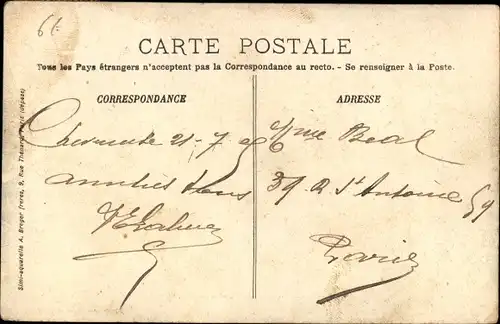 61
CARTE POSTALE
Tous les Pays étrangers n'acceptent pas la Correspondance au recto. - Se renseigner à la Poste.
CORRESPONDANCE
21-7
amitiés
ADRESSE
Mme Béal
39 R St Antoine 59
Paris
Simi-aquarelle A. Breger frères, 9, Rue Thénard, Paris (déposé)